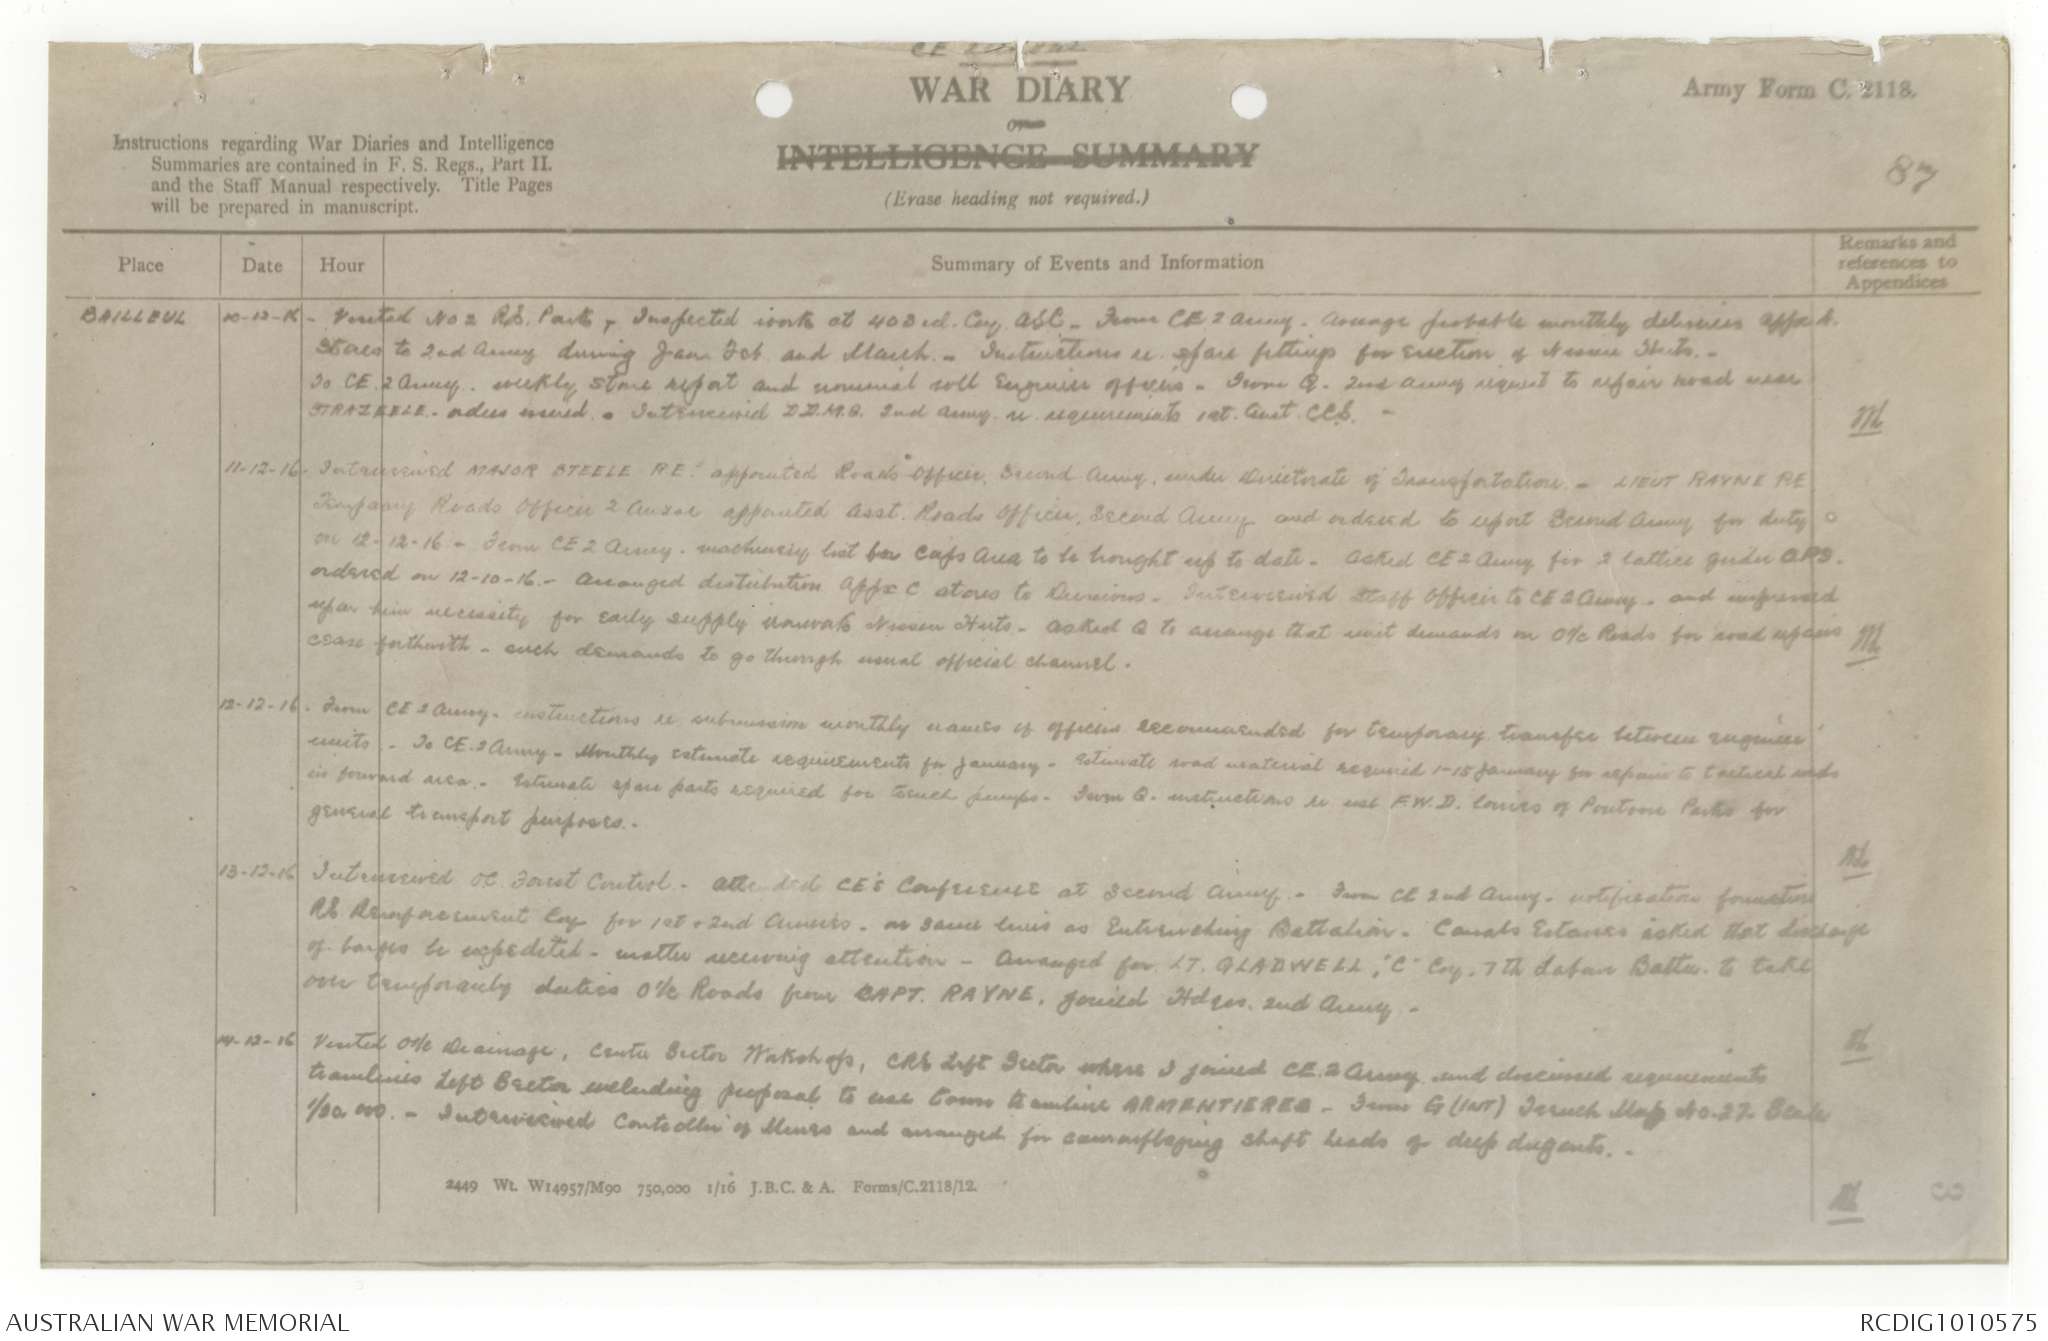 CE
WAR DIARY
Army Form C. 2118.
or
INTELLIGENCE SUMMARY
(Erase heading not required.)
87
Instructions regarding War Diaries and Intelligence
Summaries are contained in F. S. Regs., Part II.
and the Staff Manual respectively. Title Pages
will be prepared in manuscript.
Place
Date
Hour
Summary of Events and Information
Remarks and
references to
Appendices
BAILLEUL
10-12-16 - Visited No 2 R.E. Park, Inspected work at 403rd. Coy ASC. From CE 2 Army. Average probable monthly deliveries
Stores to 2nd Army during Jan Feb and March. - Instructions re. spare fittings for erection of Nissen Huts. -
To CE. 2 Army. weekly store report and nominal roll Engineer officers - From Q. 2nd Army request to repair road near
STRAZEELE. - orders issued. - Interviewed D.D.M.S. 2nd Army. re. requirements 1st. Aust. C.C.S. -
11-12-16. Interviewed MAJOR STEELE R.E. appointed Roads Officer, Second Army, under Directorate of Transportation. - LIEUT RAYNE RE
Temporary Roads Officer 2 Anzac appointed Asst. Roads Officer, Second Army and ordered to report Second Army for duty
on 12-12-16 - From CE 2 Army. machinery list for Corps Area to be brought up to date - Asked CE 2 Army for 2 lattice girder
ordered on 12-10-16. - Arranged distribution Appx C stores to Divisions. - Interviewed Staff Officer to CE 2 Army - and impressed
upon him necessity for early supply Nissen Huts - Asked Q to arrange that unit demands on O i/c Roads for road repairs
cease forthwith - such demands to go through usual official channel.
12-12-16. From CE 2 Army. instructions re submission monthly names of officers recommended for temporary transfer between engineer
units. - To CE. 2 Army - Monthly estimate requirements for January - Estimate road material required 1-15 January for repairs to roads
in forward area - Estimate spare parts required for trench pumps - From Q. instructions re use F.W.D. lorries of Pontoon Parks for
general transport purposes. -
13-12-16 Interviewed OC. Forest Control - attended CE's Conference at Second Army. - From CE 2nd Army - notification formation
RE Reinforcement Coy for 1st & 2nd Armies - on same lines as Entrenching Battalion - Canals Estaires asked that discharge
of barges be expedited - matter receiving attention - Arranged for LT. GLADWELL, "C" Coy. 7th Labour Battn. to take
over temporarily duties O i/c Roads from CAPT. RAYNE, joined Hdqrs. 2nd Army -
14-12-16 Visited O i/c Drainage, Centre Sector Workshops, CRE Left Sector where I joined CE. 2 Army and discussed requirements
tramlines Left Sector including proposal to use town tramline ARMENTIERES - From G (INT) Trench Map No. 27. Scale
- Interviewed Controller of Mines and arranged for camouflaging shaft heads of deep dugouts. -
2449 Wt. W14957/M90 750,000 1/16 J.B.C. & A. Forms/C.2118/12.
AUSTRALIAN WAR MEMORIAL
RCDIG1010575